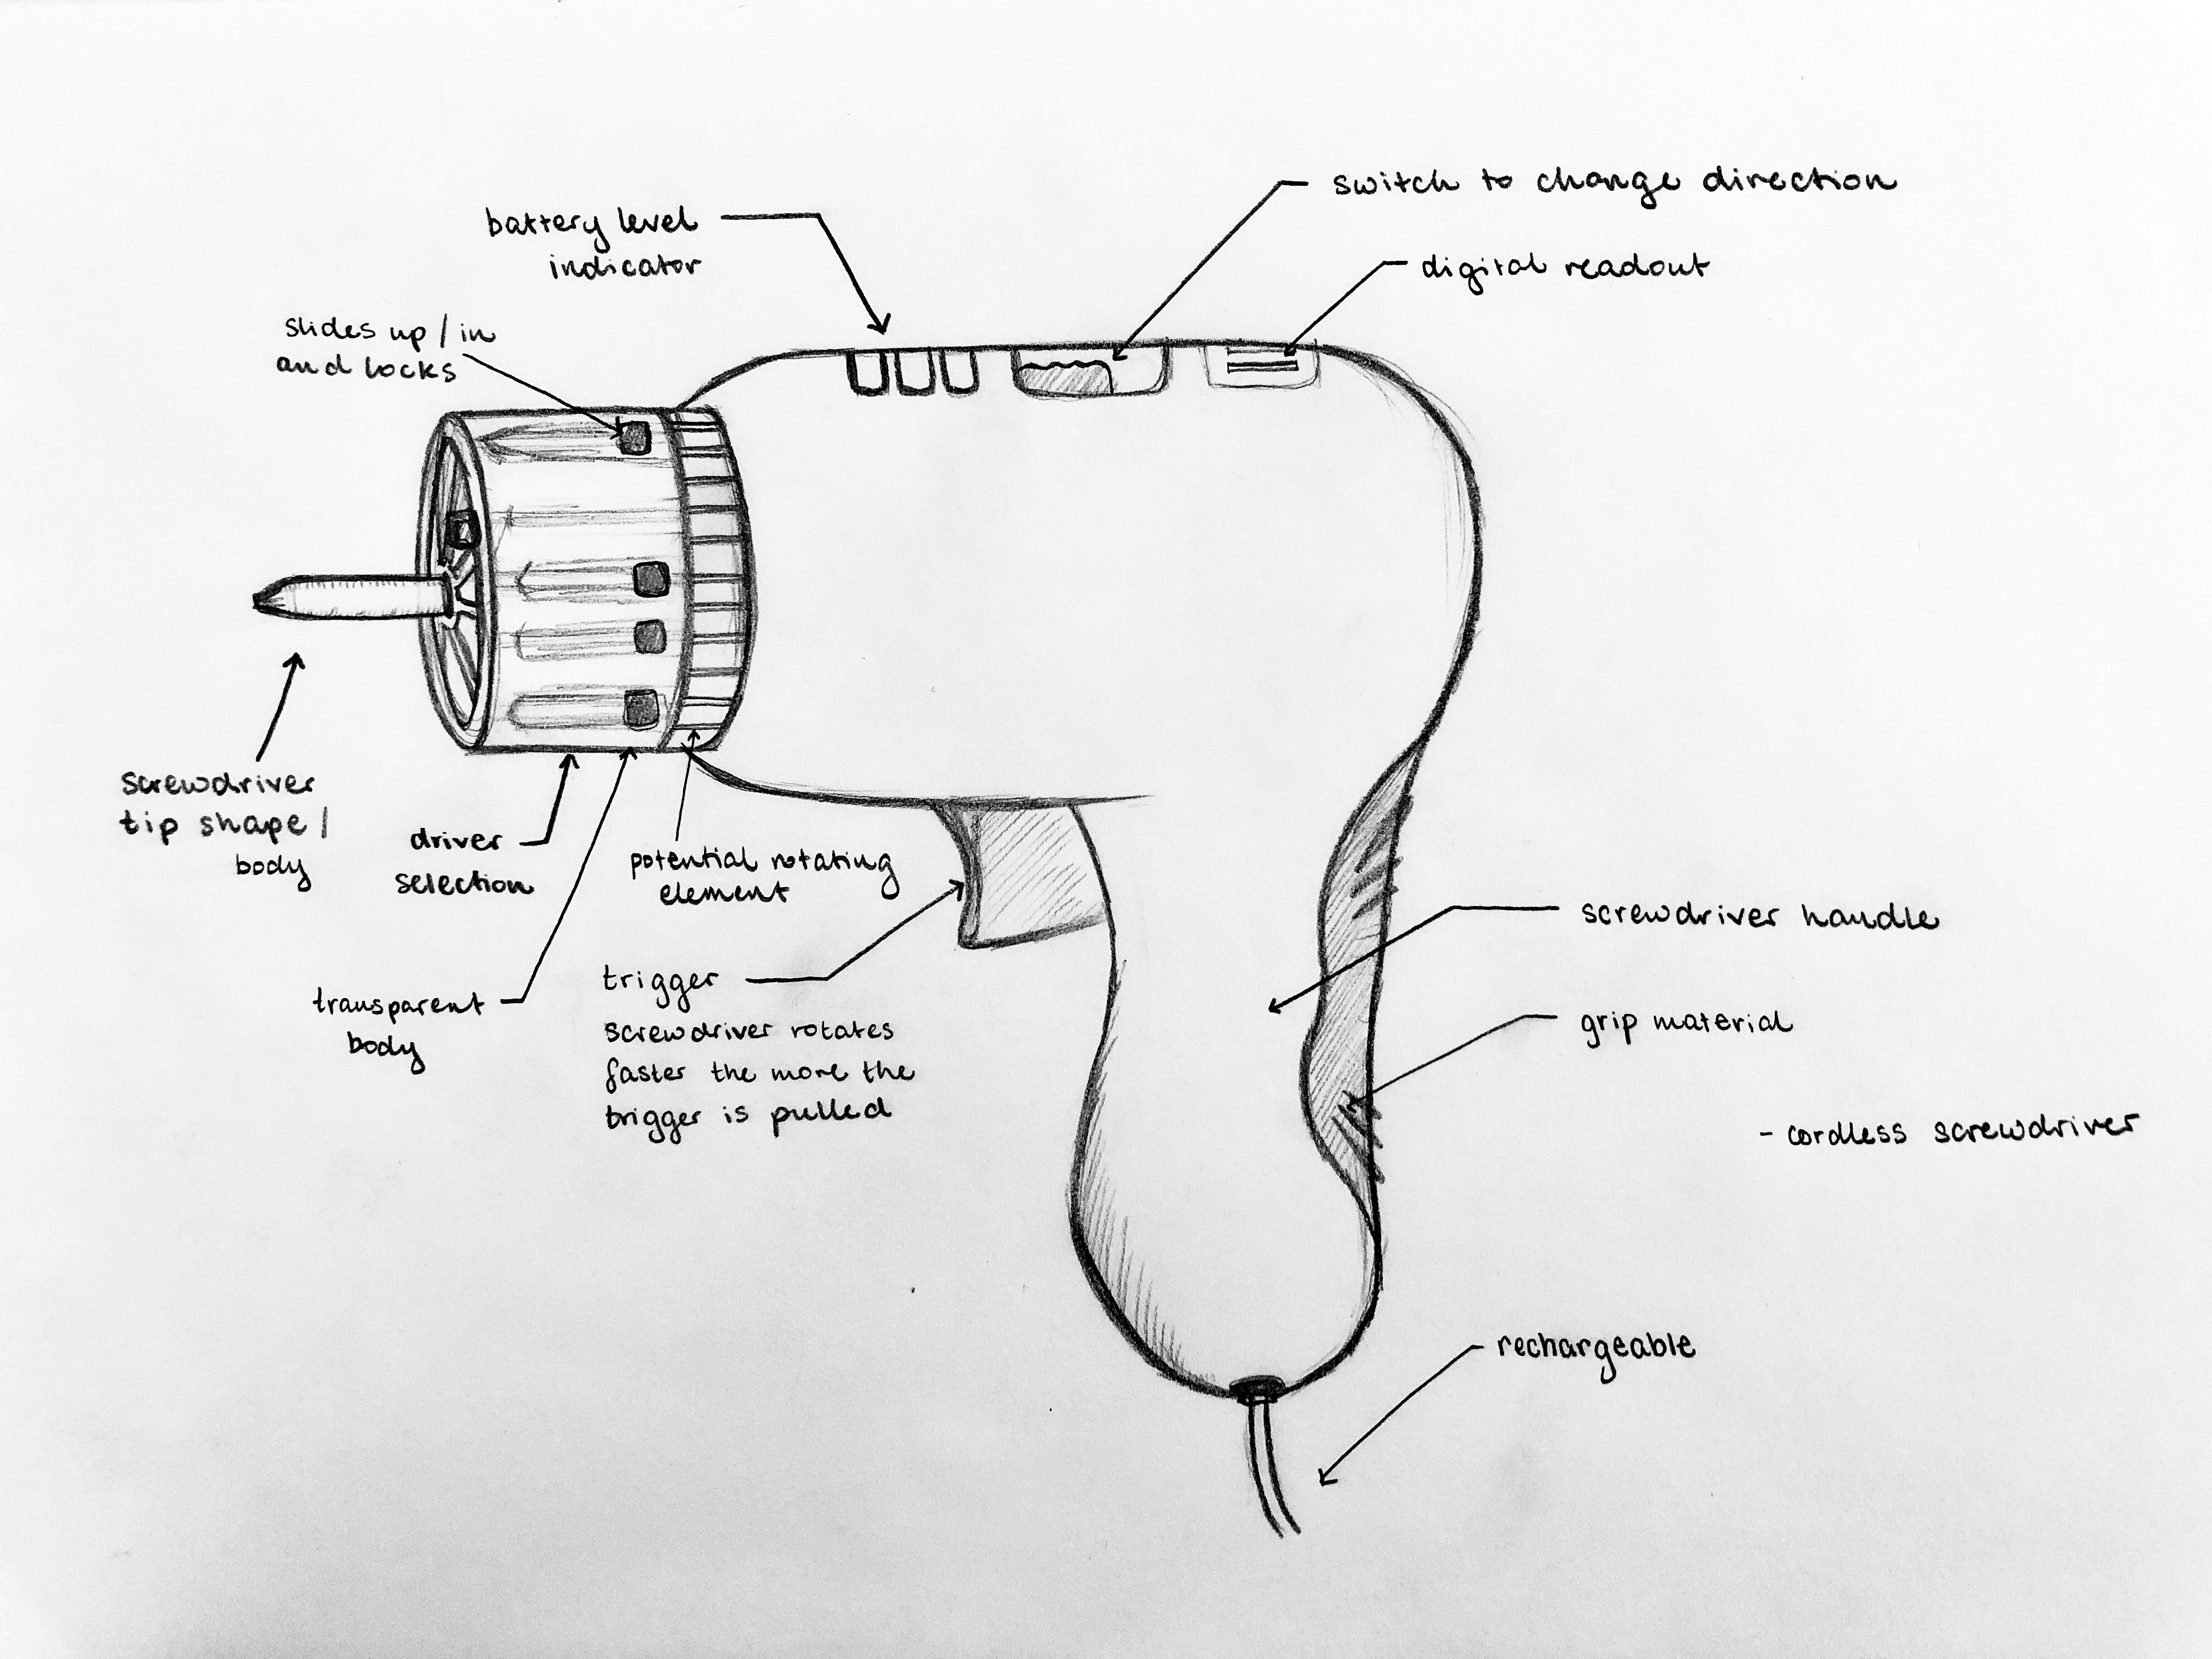 switch to change direction
battery level
indicator
digital readout
slides up / in
and locks
screwdriver
tip shape /
body
driver
selection
potential rotating
element
transparent
body
trigger
screwdriver rotates
faster the more the
trigger is pulled
screwdriver handle
grip material
- cordless screwdriver
rechargeable